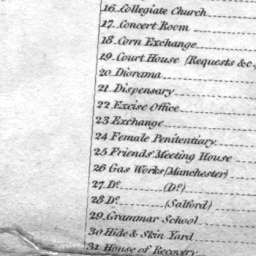 16. Collegiate Church
17. Concert Room
18. Corn Exchange
19. Court House (Requests &c.
20. Diorama
21. Dispensary
22. Excise Office
23 Exchange
24 Female Penitentiary
25 Friends' Meeting House
26 Gas Works (Manchester)
27. Do. (Do.)
28 Do. (Salford)
29. Grammar School
30 Hide & Skin Yard
31 House of Recovery